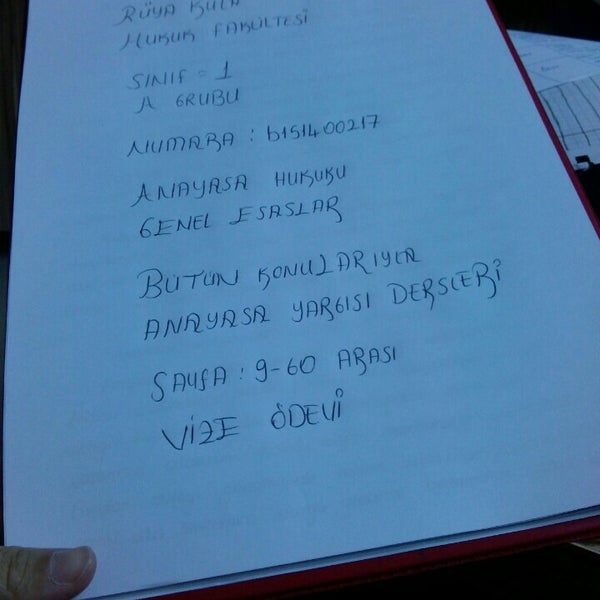 RÜYA KULA
HUKUK FAKÜLTESİ
SINIF = 1
A GRUBU
NUMARA : b151400217
ANAYASA HUKUKU
GENEL ESASLAR
BÜTÜN KONULARIYLA
ANAYASA YARGISI DERSLERİ
SAYFA : 9-60 ARASI
VİZE ÖDEVİ